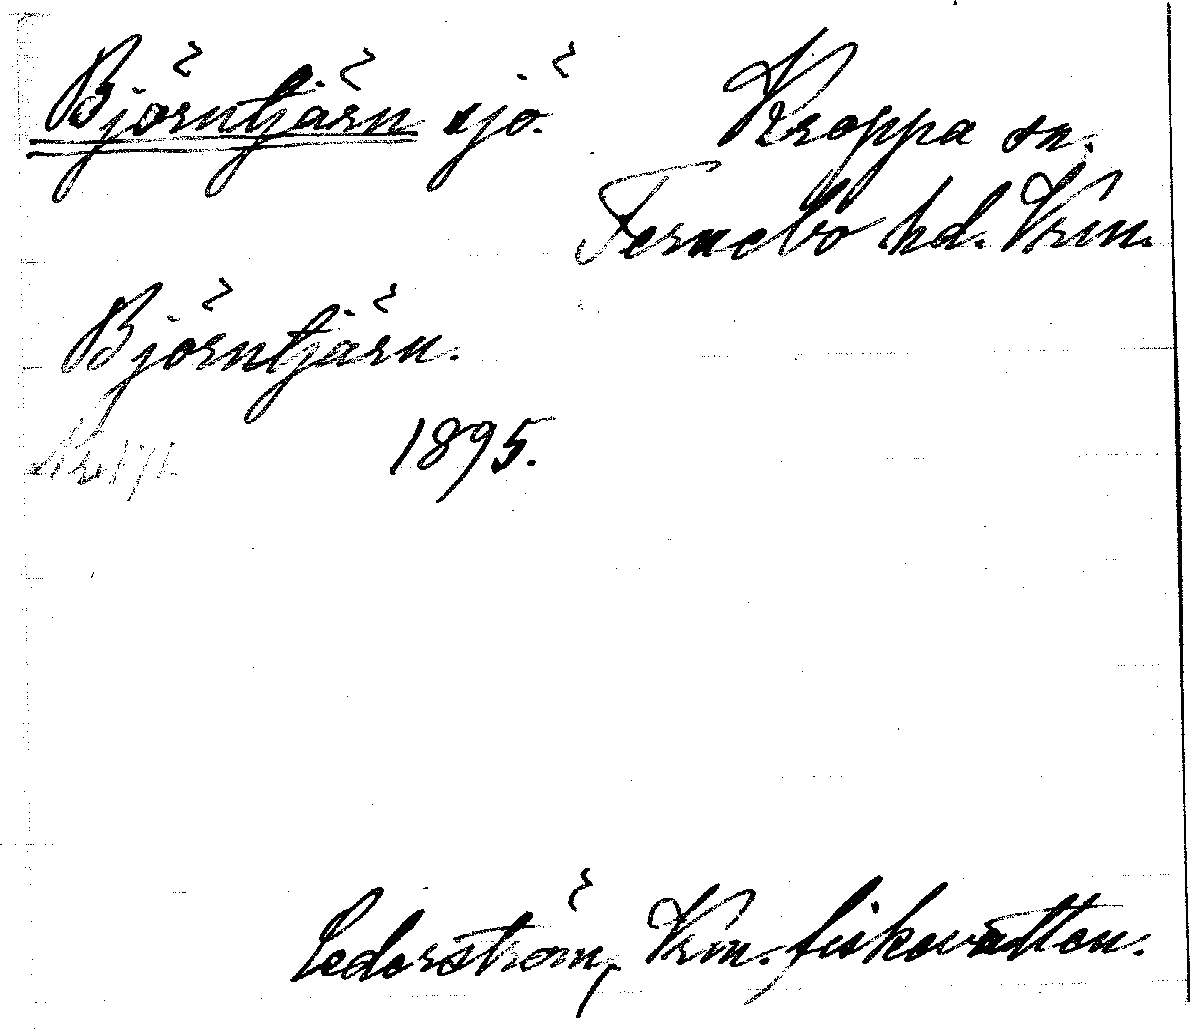 Björntjärn sjö. Kroppa sn.
Fernebo hd. Vrm.
Björntjärn.
1895.
Cederström, Vrm. fiskevatten.